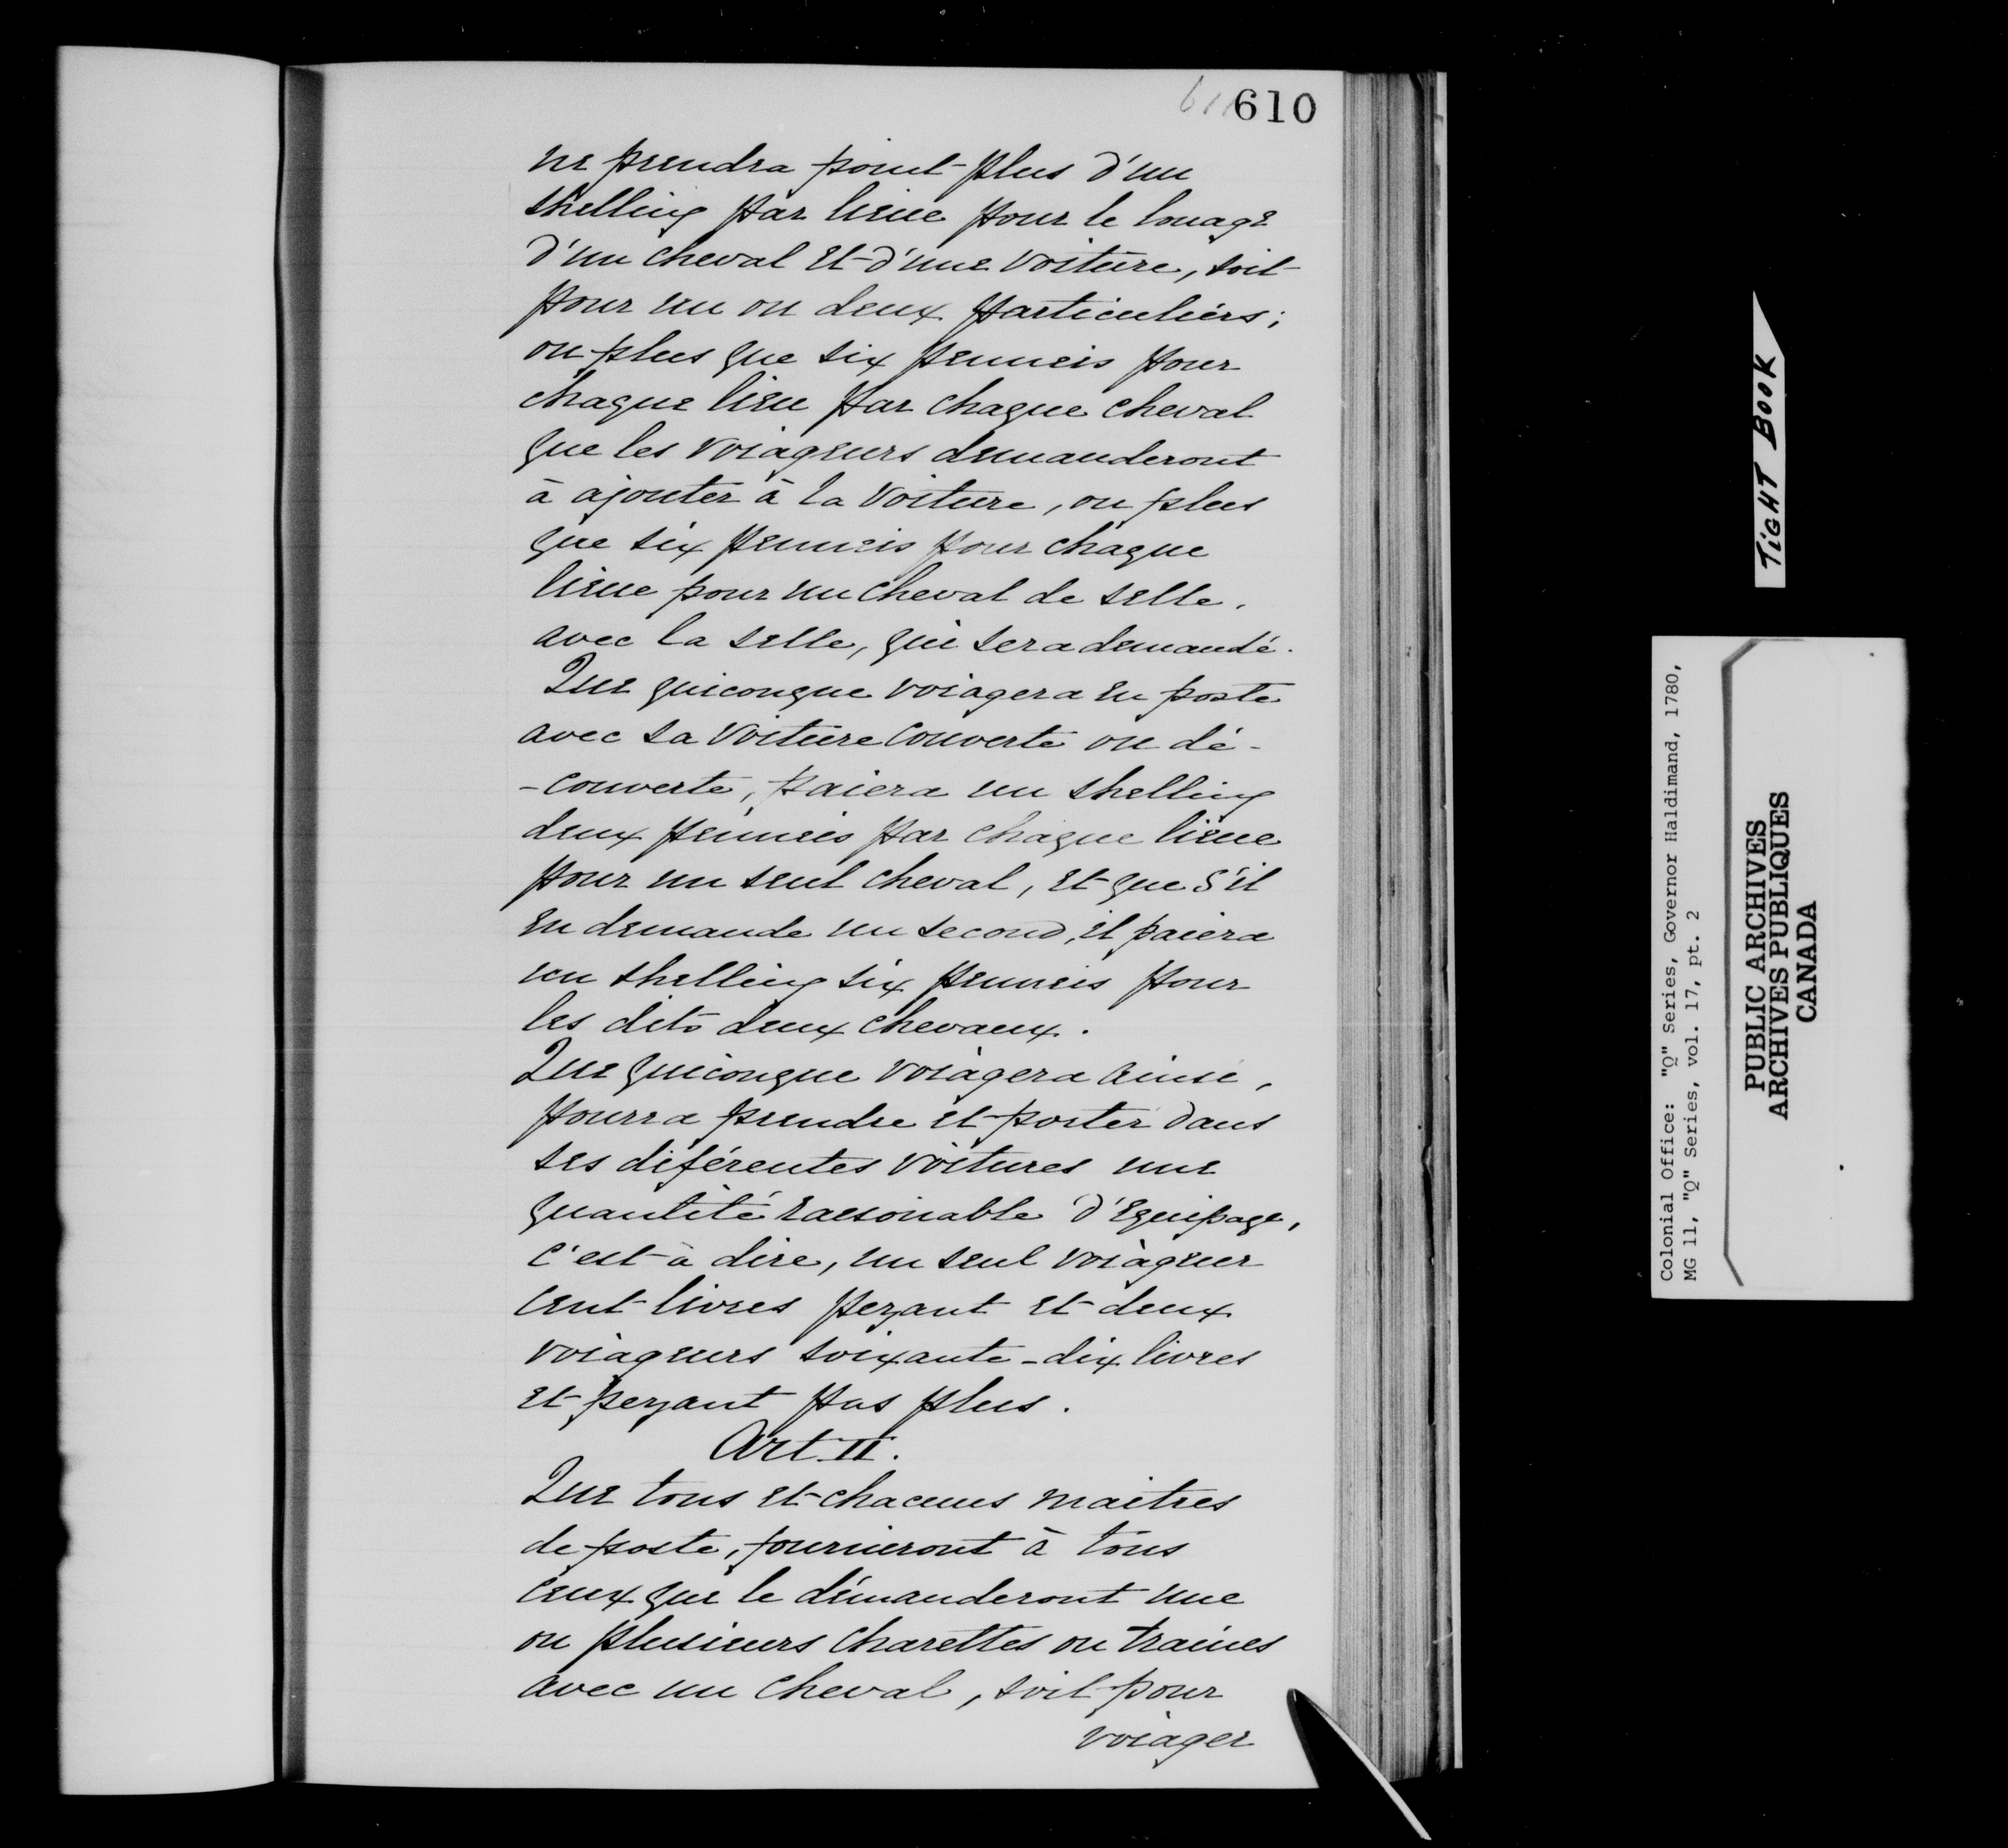 611 610
ne prendra point plus d'un
shelling par lieue pour le louage
d'un cheval et d'une voiture, soit
pour un ou deux particuliers;
ou plus que six penneis pour
chaque lieu par chaque cheval
que les voiageurs demanderont
à ajouter à la voiture, ou plus
que six penneis pour chaque
lieue pour un cheval de selle,
avec la selle, qui sera demandé.
Que quiconque voiagera en poste
avec sa voiture couverte ou dé-
-couverte, paiera un shelling
deux penneis par chaque lieue
pour un seul cheval, et que s'il
en demande un second, il paiera
un shelling six penneis pour
les dits deux chevaux.
Que quiconque voiagera ainsi,
pourra prendre et porter dans
ses diférentes voitures une
quantité raisonable d'equipage,
c'est à dire, un seul voiageur
cent livres pezant et deux
voiageurs soixante-dix livres
et pezant pas plus.
Art. II.
Que tous et chacuns maitres
de poste, fourniront à tous
ceux que le démanderont une
ou plusieurs charettes ou traines
avec un cheval, soit pour
voiager
TIGHT BOOK
Colonial Office: "Q" Series, Governor Haldimand, 1780,
MG 11, "Q" Series, vol. 17, pt. 2
PUBLIC ARCHIVES
ARCHIVES PUBLIQUES
CANADA